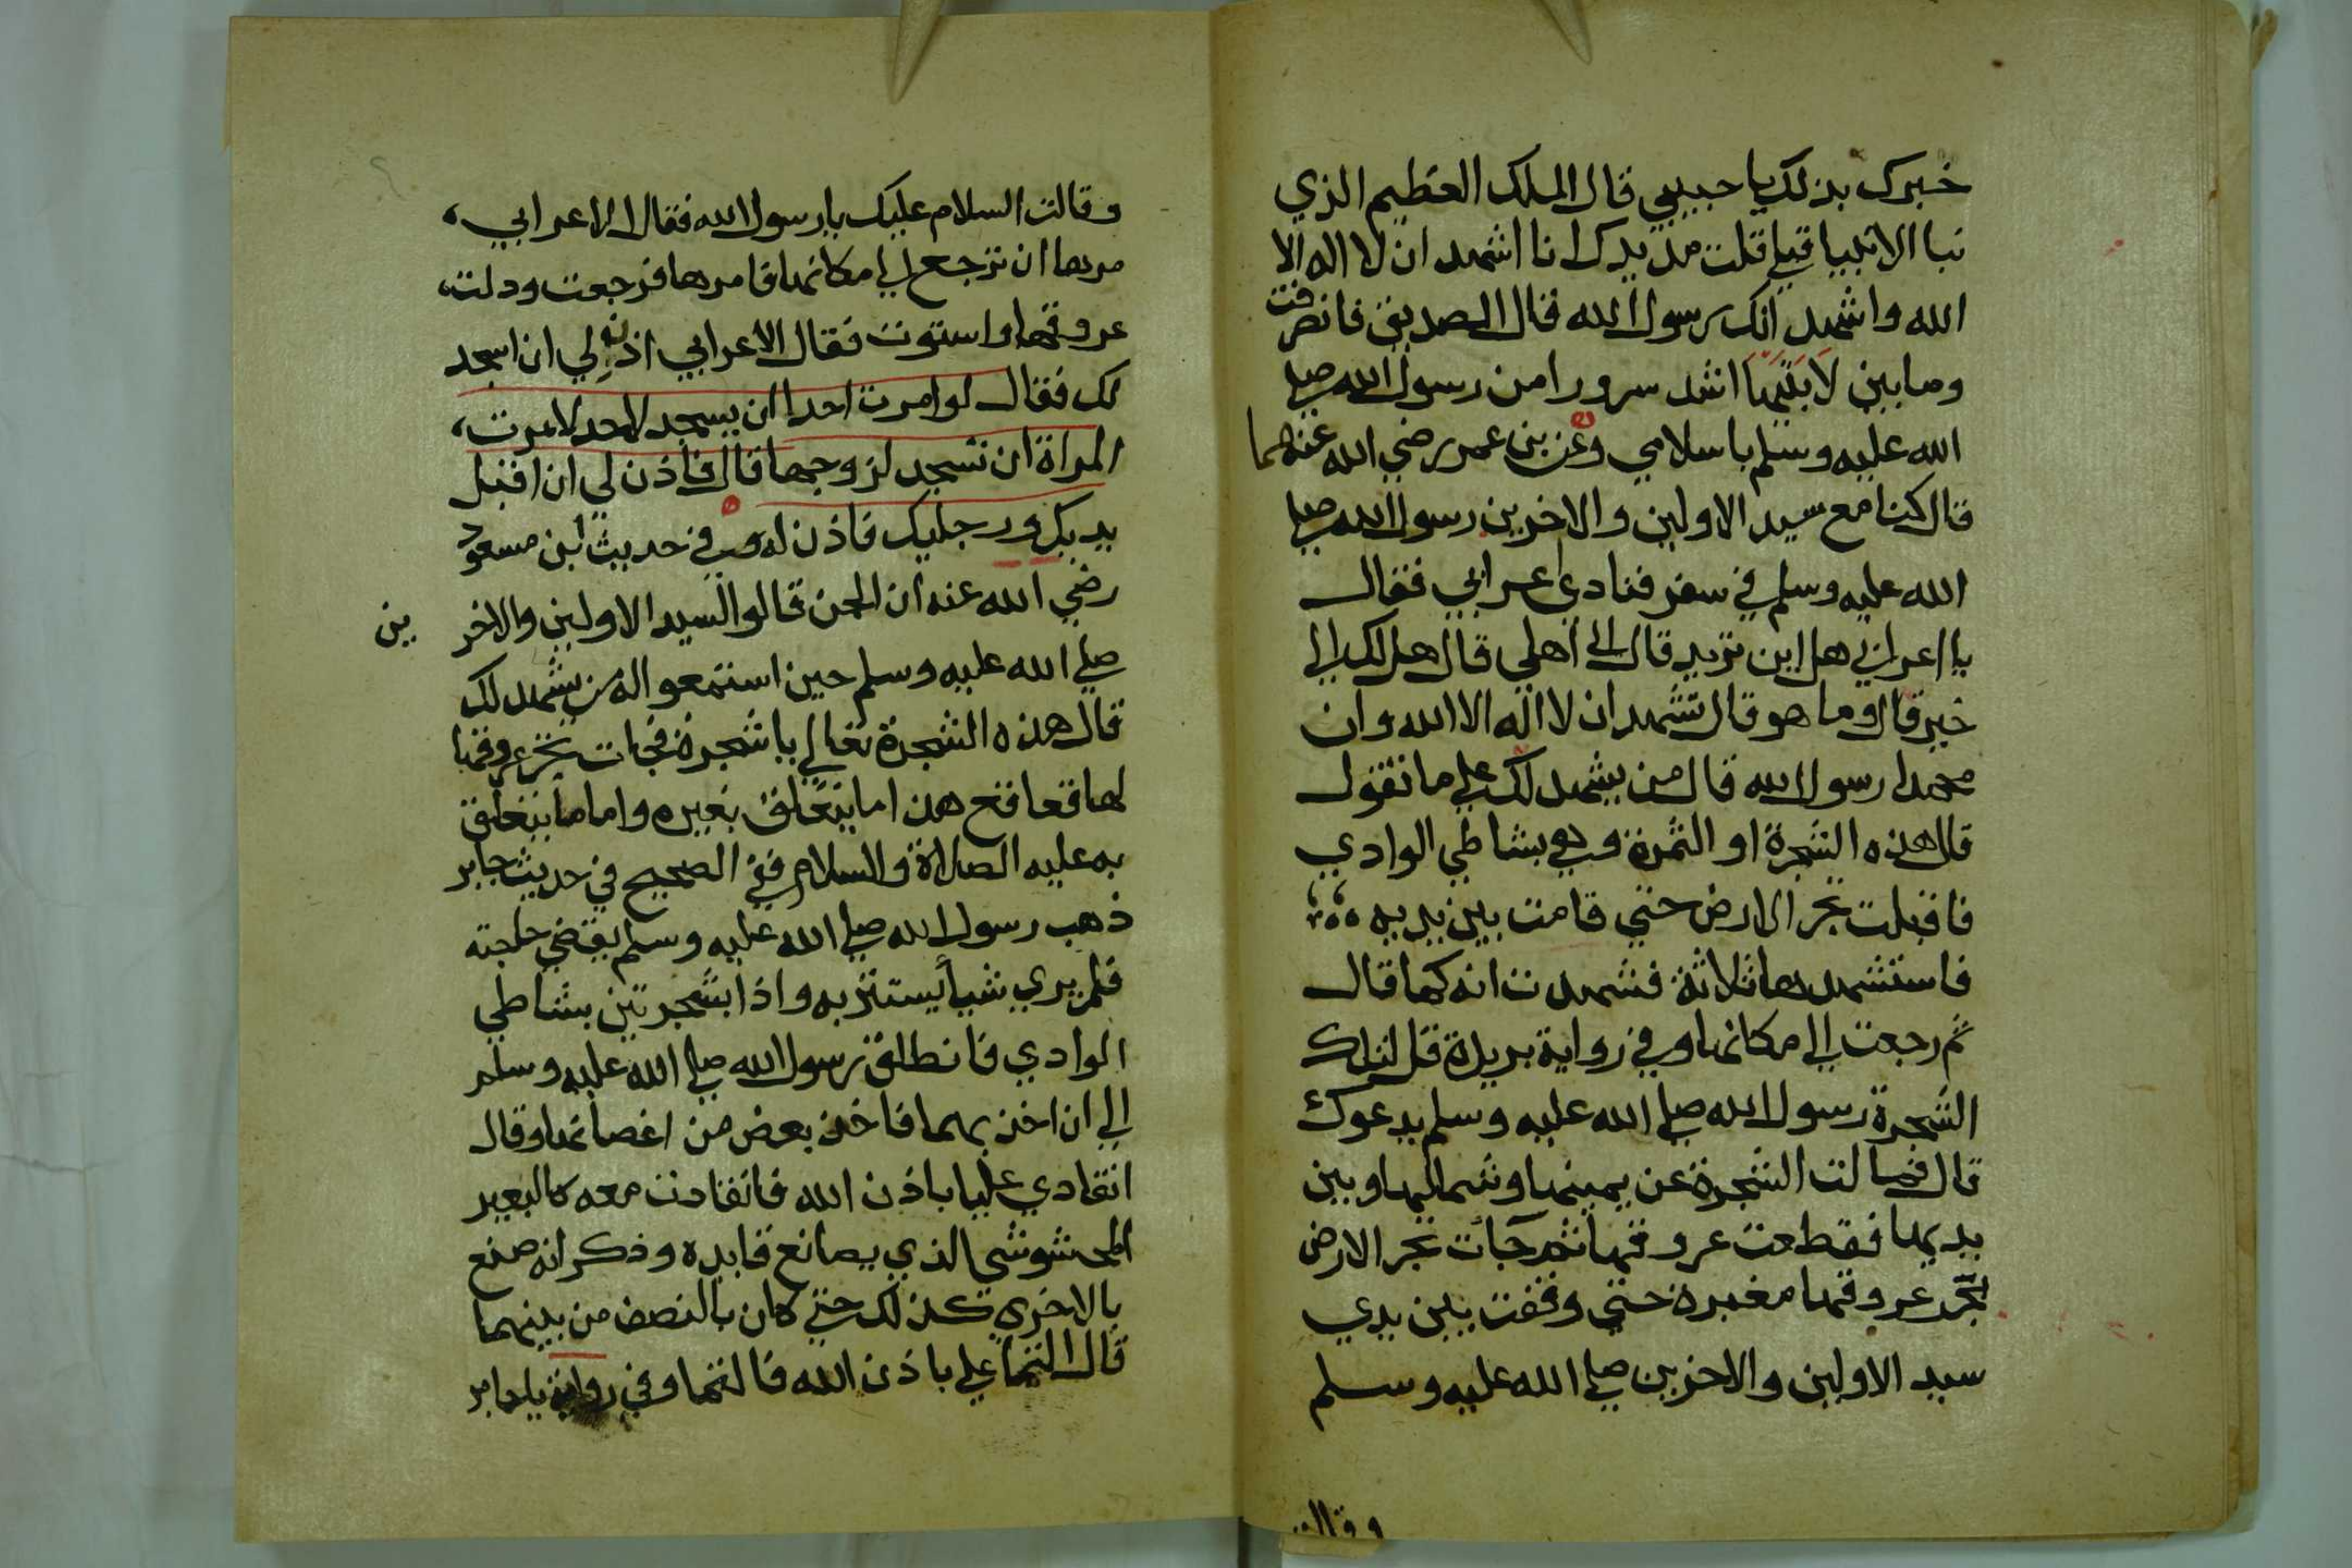 خبرك بذلك يا حبيبي قال الملك العظيم الذي
نبا الانبيا قبلي قلت مد يدك انا اشهد ان لا اله الا
الله واشهد انك رسول الله قال الصديق فانصرفت
وما بين لابتيها اشد سرورا من رسول الله صلي
الله عليه وسلم باسلامي وعن بن عمر رضي الله عنهما
قال كنا مع سيد الاولين والاخرين رسول الله صلي
الله عليه وسلم في سفر فنادي اعرابي فقال
يا اعرابي هل اين تريد قال الي اهلي قال هل لك الي
خير قال وما هو قال تشهد ان لا اله الا الله وان
محمدا رسول الله قال من يشهد لك علي ما تقول
قال هذه الشجرة او الثمرة وهي بشاطي الوادي
فاقبلت تجر الارض حتي قامت بين يديه
فاستشهدها ثلاثة فشهدت انه كما قال
ثم رجعت الي مكانها وفي رواية بريدة قل لتلك
الشجرة رسول الله صلي الله عليه وسلم يدعوك
قال فمالت الشجرة عن يمينها وشمالها وبين
يديها فقطعت عروقها ثم جات تجر الارض
تجر عروقها مغبرة حتي وقفت بين يدي
سيد الاولين والاخرين صلي الله عليه وسلم
وقالت
وقالت السلام عليك يا رسول الله فقال الاعرابي
مرها ان ترجع الي مكانها فامرها فرجعت ودلت
عروقها واستوت فقال الاعرابي اذن لي ان اسجد
لك فقال لو امرت احدا ان يسجد لاحد لامرت
المراة ان تسجد لزوجها قال فاذن لي ان اقبل
يديك ورجليك فاذن له وفي حديث ابن مسعود
رضي الله عنه ان الجن قالوا لسيد الاولين والاخرين
صلي الله عليه وسلم حين استمعوا له من يشهد لك
قال هذه الشجرة تعالي يا شجرة فجات تجر عروقها
لها قعاقع هذا ما يتعلق بغيره واما ما يتعلق
به عليه الصلاة والسلام ففي الصحيح في حديث جابر
ذهب رسول الله صلي الله عليه وسلم يقضي حاجته
فلم يري شيأ يستتر به واذا بشجرتين بشاطي
الوادي فانطلق رسول الله صلي الله عليه وسلم
الي ان اخذ بهما فاخذ بعض من اغصانها وقال
انقادي عليا باذن الله فانقادت معه كالبعير
المخشوش الذي يصانع قايده وذكر انه صنع
بالاخري كذلك حتي كان بالنصف من بينهما
قال التما علي باذن الله فالتما وفي رواية يا جابر